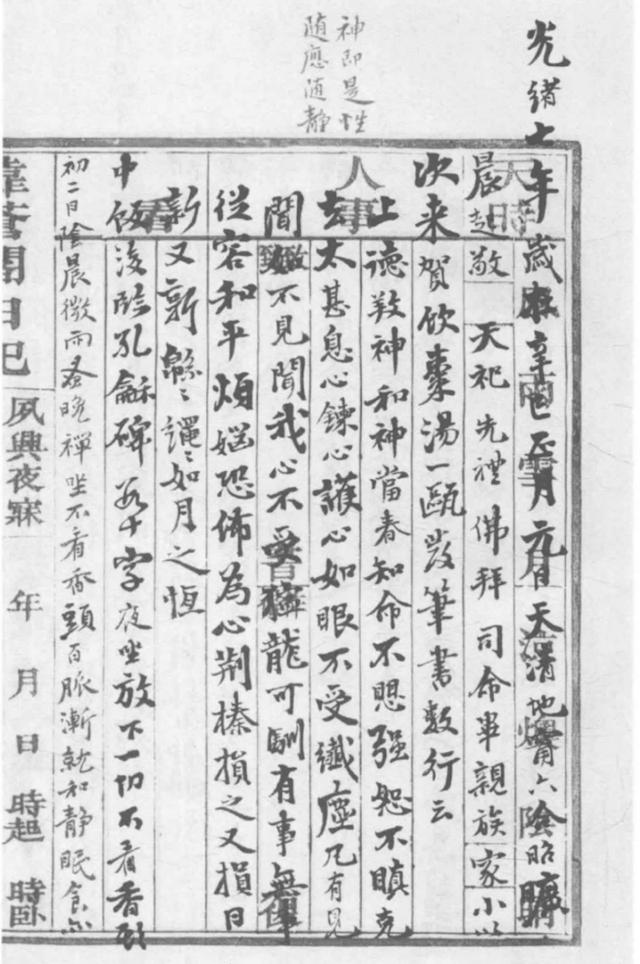 神即是性
随應随静
光緒七年歲在辛巳正月元日天清地甯六陰昭曠
晨起敬天祀先禮佛拜司命畢親族家小以
次来賀飲棗湯一甌發筆書數行云
上德敦神和神當春知命不思强恕不瞋克
去太甚息心鍊心護心如眼不受纖塵凡有見
聞如不見聞我心不受獰龍可馴有事無事
從容和平煩惱恐怖為心荆榛損之又損日
新又新緜緜繩繩如月之恆
中飯後臨孔龢碑六十字夜坐放下一切不看香頭
初二日陰晨微雨蚤晚禪坐不看香頭百脈漸就和静眠食亦
日記
夙興夜寐 年 月 日 時起 時卧
天時
人事